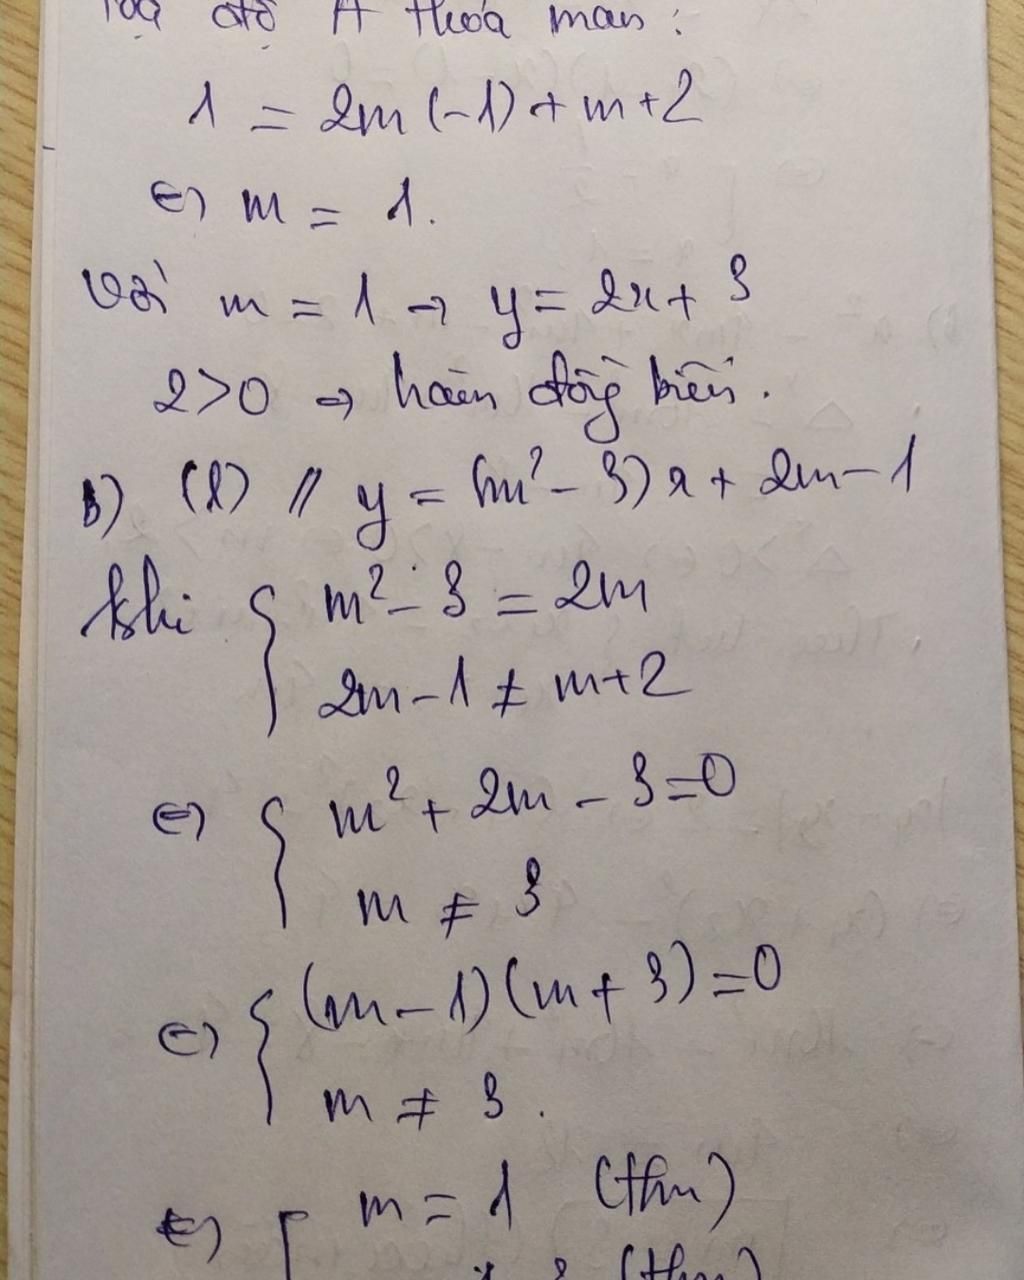 Toạ độ A thoả mãn :
1 = 2m (-1) + m+2
⇔ m = 1.
Với m = 1 → y = 2x + 3
2>0 → hàm đồng biến.
b) (d) // y = (m² - 3) x + 2m - 1
khi { m² - 3 = 2m
2m - 1 ≠ m+2
⇔ { m² + 2m - 3 = 0
m ≠ 3
⇔ { (m - 1) (m + 3) = 0
m ≠ 3.
⇔ [ m = 1 (thm)
(thm)